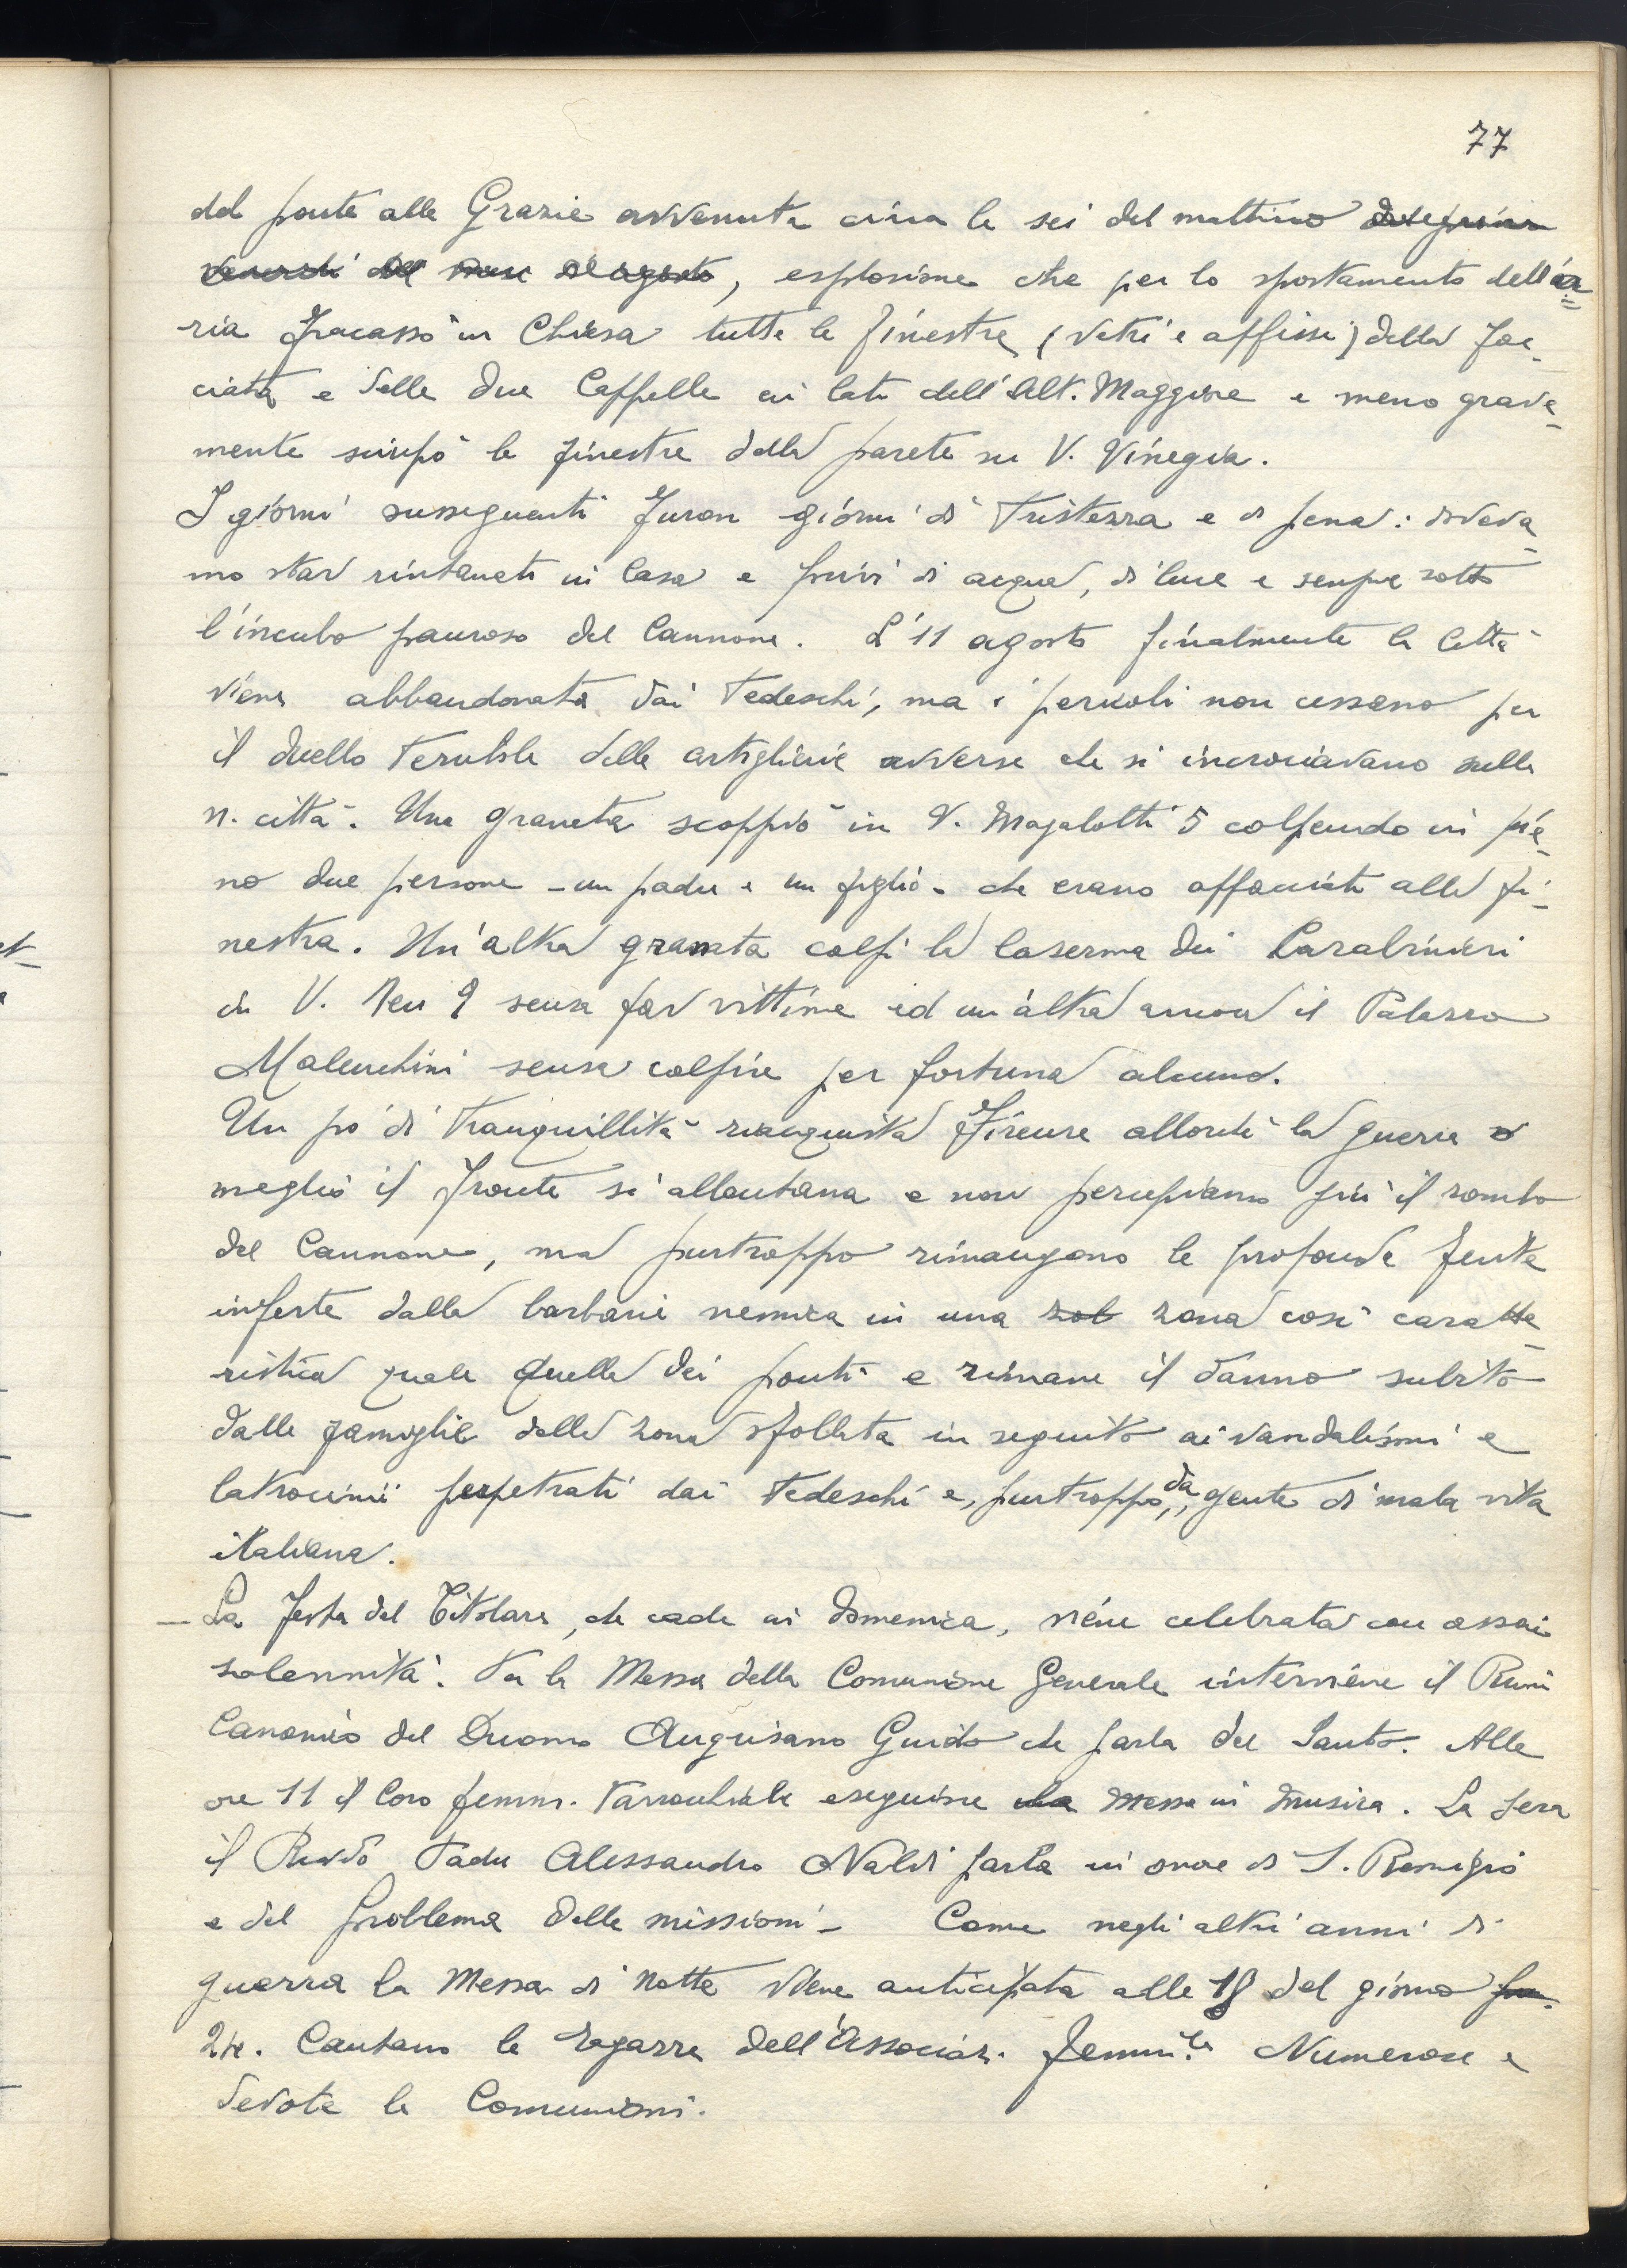 77
del ponte alle Grazie avvenuta circa le sei del mattino del primo
venerdì del mese di agosto, esplosione che per lo spostamento dell'a=
ria fracassò in Chiesa tutte le finestre (vetri e affissi) della fac-
ciata e delle due Cappelle ai lati dell'Alt. Maggiore e meno grave-
mente sciupò le finestre della parete su V. Vinegia.
I giorni susseguenti furon giorni di tristezza e di pena: doveva-
mo star rintanati in Casa e privi di acqua, di luce e sempre sotto
l'incubo pauroso del Cannone. L'11 agosto finalmente la Città
viene abbandonata dai Tedeschi, ma i pericoli non cessano per
il duello terribile delle artiglierie avverse che si incrociavano sulla
n. città. Una granata scoppiò in V. Magalotti 5 colpendo in pie-
no due persone - un padre e un figlio - che erano affacciati alla fi-
nestra. Un'altra granata colpì la Caserma dei Carabinieri
in V. Neri 9 senza far vittime ed un'altra ancora il Palazzo
Malenchini senza colpire per fortuna alcuno.
Un po' di tranquillità riacquista Firenze allorché la guerra o
meglio il fronte si allontana e non percepiamo più il rombo
del Cannone, ma purtroppo rimangono le profonde ferite
inferte dalla barbarie nemica in una zob zona così caratte-
ristica quale quella dei ponti e rimane il danno subito
dalle famiglie della zona sfollata in seguito ai vandalismi e
latrocinii perpetrati dai Tedeschi e, purtroppo, da gente di mala vita
italiana.
— La festa del Titolare, che cade in domenica, viene celebrata con assai
solennità. Per la Messa della Comunione Generale interviene il Rvmo
Canonico del Duomo Anguisano Guido che parla del Santo. Alle
ore 11 il Coro femm. Parrocchiale eseguisce la Messa in Musica. La sera
il Revdo Padre Alessandro Naldi parla in onore di S. Remigio
e del problema delle missioni - Come negli altri anni di
guerra la Messa di Notte viene anticipata alle 18 del giorno
24. Cantano le Ragazze dell'Associaz. femm.le Numerose e
devote le Comunioni.